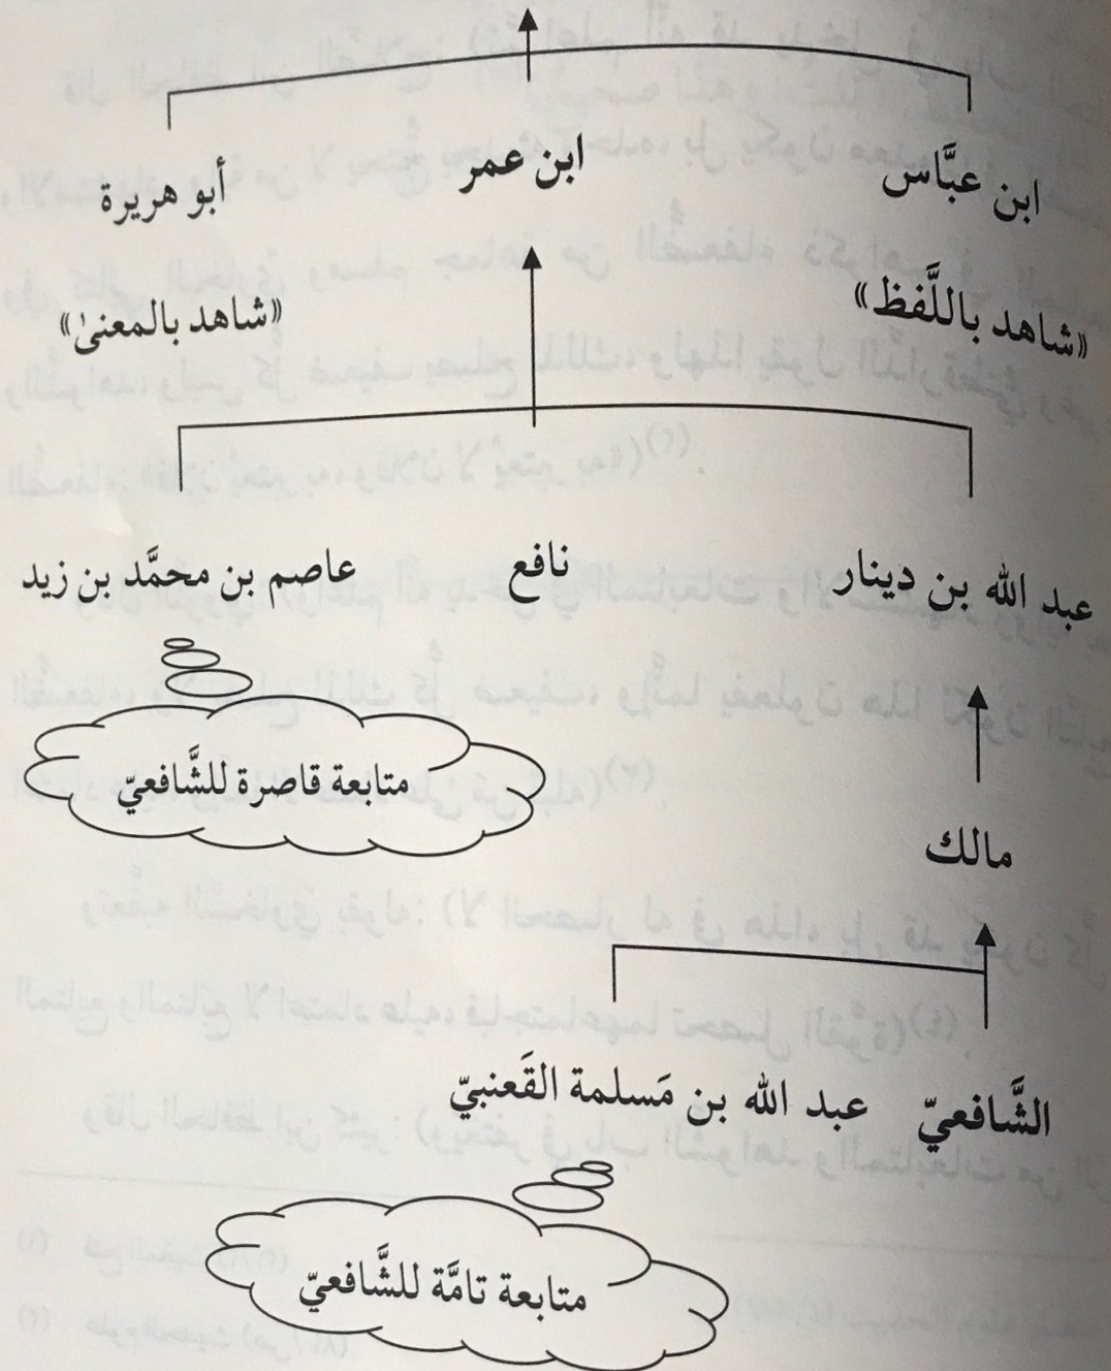 ابن عبَّاس ابن عمر أبو هريرة
«شاهد باللَّفظ» «شاهد بالمعنىٰ»
عبد الله بن دينار نافع عاصم بن محمَّد بن زيد
متابعة قاصرة للشَّافعيّ
مالك
الشَّافعيّ عبد الله بن مَسلمة القَعنبيّ
متابعة تامَّة للشَّافعيّ